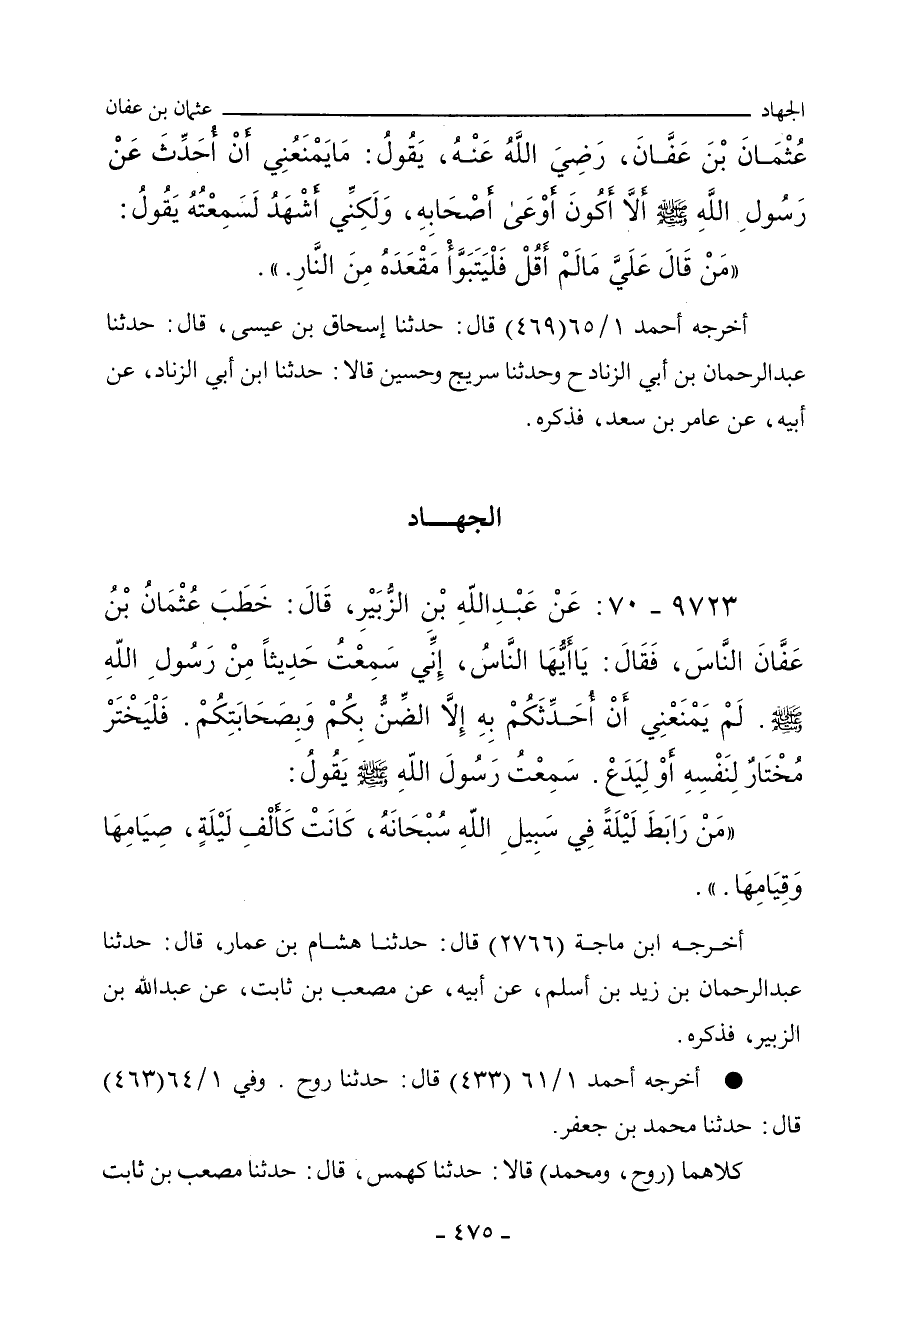 الجهاد ــــــــــــــــــــ عثمان بن عفان
عُثْمَـانَ بْنَ عَفَّـانَ، رَضِيَ اللَّهُ عَنْـهُ، يَقُولُ: مَايَمْنَعُنِي أَنْ أُحَدِّثَ عَنْ
رَسُولِ اللَّهِ ﷺ أَلَّا أَكُونَ أَوْعَىٰ أَصْحَابِهِ، وَلَكِنِّي أَشْهَدُ لَسَمِعْتُهُ يَقُولُ:
«مَنْ قَالَ عَلَيَّ مَالَمْ أَقُلْ فَلْيَتَبَوَّأْ مَقْعَدَهُ مِنَ النَّارِ.».
أخرجه أحمد ١/ ٦٥(٤٦٩) قال: حدثنا إسحاق بن عيسى، قال: حدثنا
عبدالرحمان بن أبي الزناد ح وحدثنا سريج وحسين قالا: حدثنا ابن أبي الزناد، عن
أبيه، عن عامر بن سعد، فذكره.
الجهـــاد
٩٧٢٣ - ٧٠: عَنْ عَبْـدِاللّهِ بْنِ الزُّبَيْرِ، قَالَ: خَطَبَ عُثْمَانُ بْنُ
عَفَّانَ النَّاسَ، فَقَالَ: يَاأَيُّهَا النَّاسُ، إِنِّي سَمِعْتُ حَدِيثاً مِنْ رَسُولِ اللّهِ
ﷺ. لَمْ يَمْنَعْنِي أَنْ أُحَـدِّثَكُمْ بِهِ إِلَّا الضِّنُّ بِكُمْ وَبِصَحَابَتِكُمْ. فَلْيَخْتَرْ
مُخْتَارٌ لِنَفْسِهِ أَوْ لِيَدَعْ. سَمِعْتُ رَسُولَ اللّهِ ﷺ يَقُولُ:
«مَنْ رَابَطَ لَيْلَةً فِي سَبِيلِ اللّهِ سُبْحَانَهُ، كَانَتْ كَأَلْفِ لَيْلَةٍ، صِيَامِهَا
وَقِيَامِهَا.».
أخـرجـه ابن ماجـة (٢٧٦٦) قال: حدثنـا هشـام بن عمار، قال: حدثنا
عبدالرحمان بن زيد بن أسلم، عن أبيه، عن مصعب بن ثابت، عن عبدالله بن
الزبير، فذكره.
● أخرجه أحمد ١/ ٦١ (٤٣٣) قال: حدثنا روح. وفي ١/ ٦٤(٤٦٣)
قال: حدثنا محمد بن جعفر.
كلاهما (روح، ومحمد) قالا: حدثنا كهمس، قال: حدثنا مصعب بن ثابت
- ٤٧٥ -